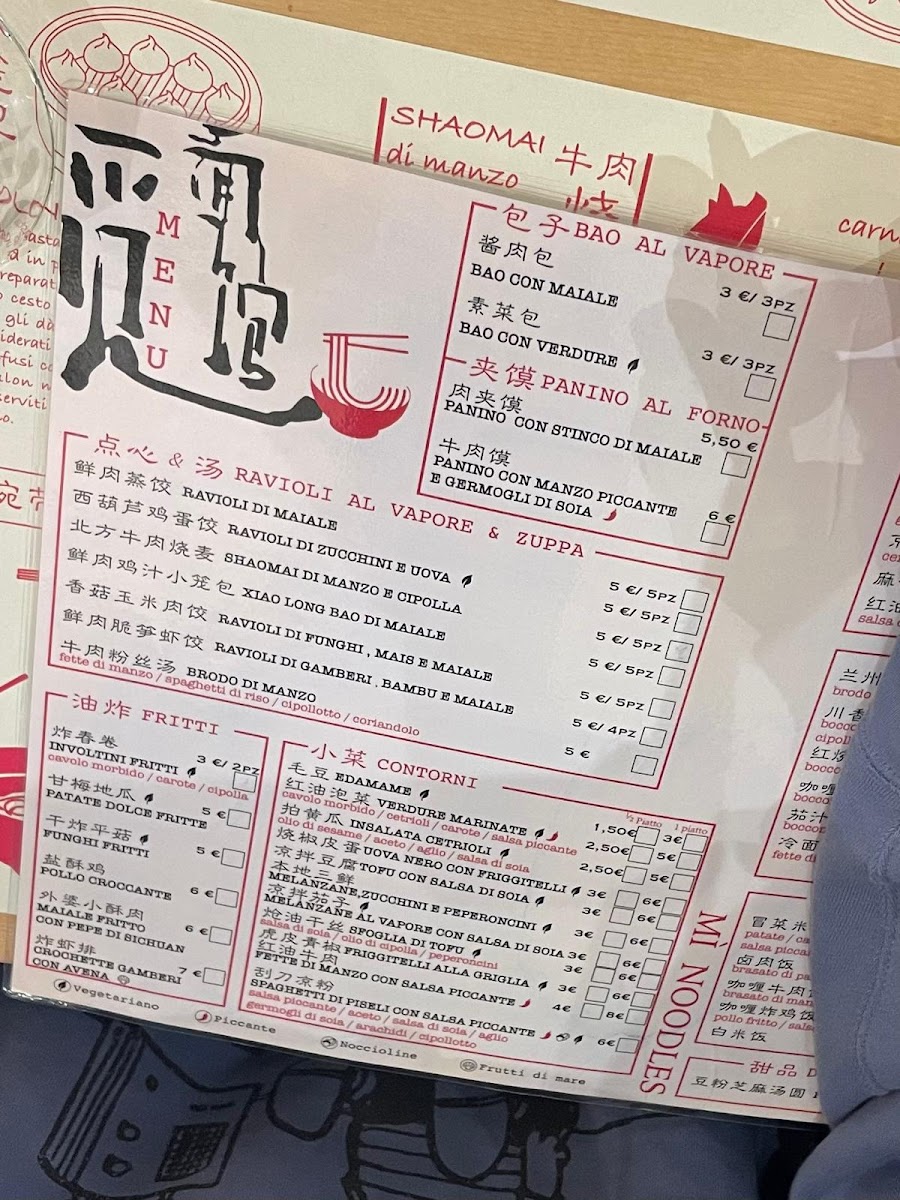 SHAOMAI 牛肉
di manzo 烧
carn
MENU
觅面馆
包子 BAO AL VAPORE
酱肉包
BAO CON MAIALE
3 €/ 3PZ
素菜包
BAO CON VERDURE
3 €/ 3PZ
夹馍 PANINO AL FORNO
肉夹馍
5,50 €
PANINO CON STINCO DI MAIALE
牛肉馍
PANINO CON MANZO PICCANTE
E GERMOGLI DI SOIA
6 €
点心 & 汤 RAVIOLI AL VAPORE & ZUPPA
鲜肉蒸饺 RAVIOLI DI MAIALE
5 €/ 5PZ
西葫芦鸡蛋饺 RAVIOLI DI ZUCCHINI E UOVA
5 €/ 5PZ
北方牛肉烧麦 SHAOMAI DI MANZO E CIPOLLA
5 €/ 5PZ
鲜肉鸡汁小笼包 XIAO LONG BAO DI MAIALE
5 €/ 5PZ
香菇玉米肉饺 RAVIOLI DI FUNGHI , MAIS E MAIALE
5 €/ 5PZ
鲜肉脆笋虾饺 RAVIOLI DI GAMBERI , BAMBU E MAIALE
5 €/ 4PZ
牛肉粉丝汤 BRODO DI MANZO
5 €
fette di manzo / spaghetti di riso / cipollotto / coriandolo
油炸 FRITTI
炸春卷
3 €/ 2PZ
INVOLTINI FRITTI
cavolo morbido / carote / cipolla
甘梅地瓜
5 €
PATATE DOLCE FRITTE
干炸平菇
5 €
FUNGHI FRITTI
盐酥鸡
6 €
POLLO CROCCANTE
外婆小酥肉
6 €
MAIALE FRITTO
CON PEPE DI SICHUAN
炸虾排
7 €
CROCHETTE GAMBERI
CON AVENA
小菜 CONTORNI
½ Piatto 1 piatto
毛豆 EDAMAME
1,50€ 3€
红油泡菜 VERDURE MARINATE
2,50€ 5€
cavolo morbido / cetrioli / carote / salsa piccante
拍黄瓜 INSALATA CETRIOLI
2,50€ 5€
olio di sesame / aceto / aglio / salsa di soia
烧椒皮蛋 UOVA NERO CON FRIGGITELLI
3€ 6€
凉拌豆腐 TOFU CON SALSA DI SOIA
3€ 6€
本地三鲜
MELANZANE,ZUCCHINI E PEPERONCINI
3€ 6€
凉拌茄子
MELANZANE AL VAPORE CON SALSA DI SOIA
3€ 6€
烩油干丝 SFOGLIA DI TOFU
3€ 6€
salsa di soia / olio di cipolla / peperoncini
虎皮青椒 FRIGGITELLI ALLA GRIGLIA
3€ 6€
红油牛肉
FETTE DI MANZO CON SALSA PICCANTE
4€ 8€
刮刀凉粉
SPAGHETTI DI PISELI CON SALSA PICCANTE
6€
salsa piccante / aceto / salsa di soia / aglio
germogli di soia / arachidi / cipollotto
MÌ NOODLES
Vegetariano
Piccante
Noccioline
Frutti di mare
麻
红油
salsa
兰州
brodo
川香
bocco
cipol
红烧
bocco
咖喱
bocco
茄汁
boccon
冷面
fette d
冒菜米
patate / ca
salsa piccan
卤肉饭
brasato di pa
咖喱牛肉
brasato di man
咖喱炸鸡饭
pollo fritto / salsa
白米饭
甜品 D
豆粉芝麻汤圆